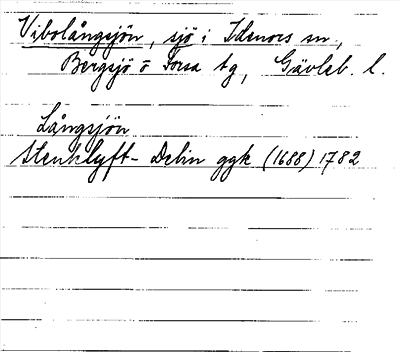 Vibolångsjön, sjö i Idenors sn.,
Bergsjö o Forsa tg, Gävleb. l.
Långsjön
Stenklyft-Delin ggk (1688) 1782